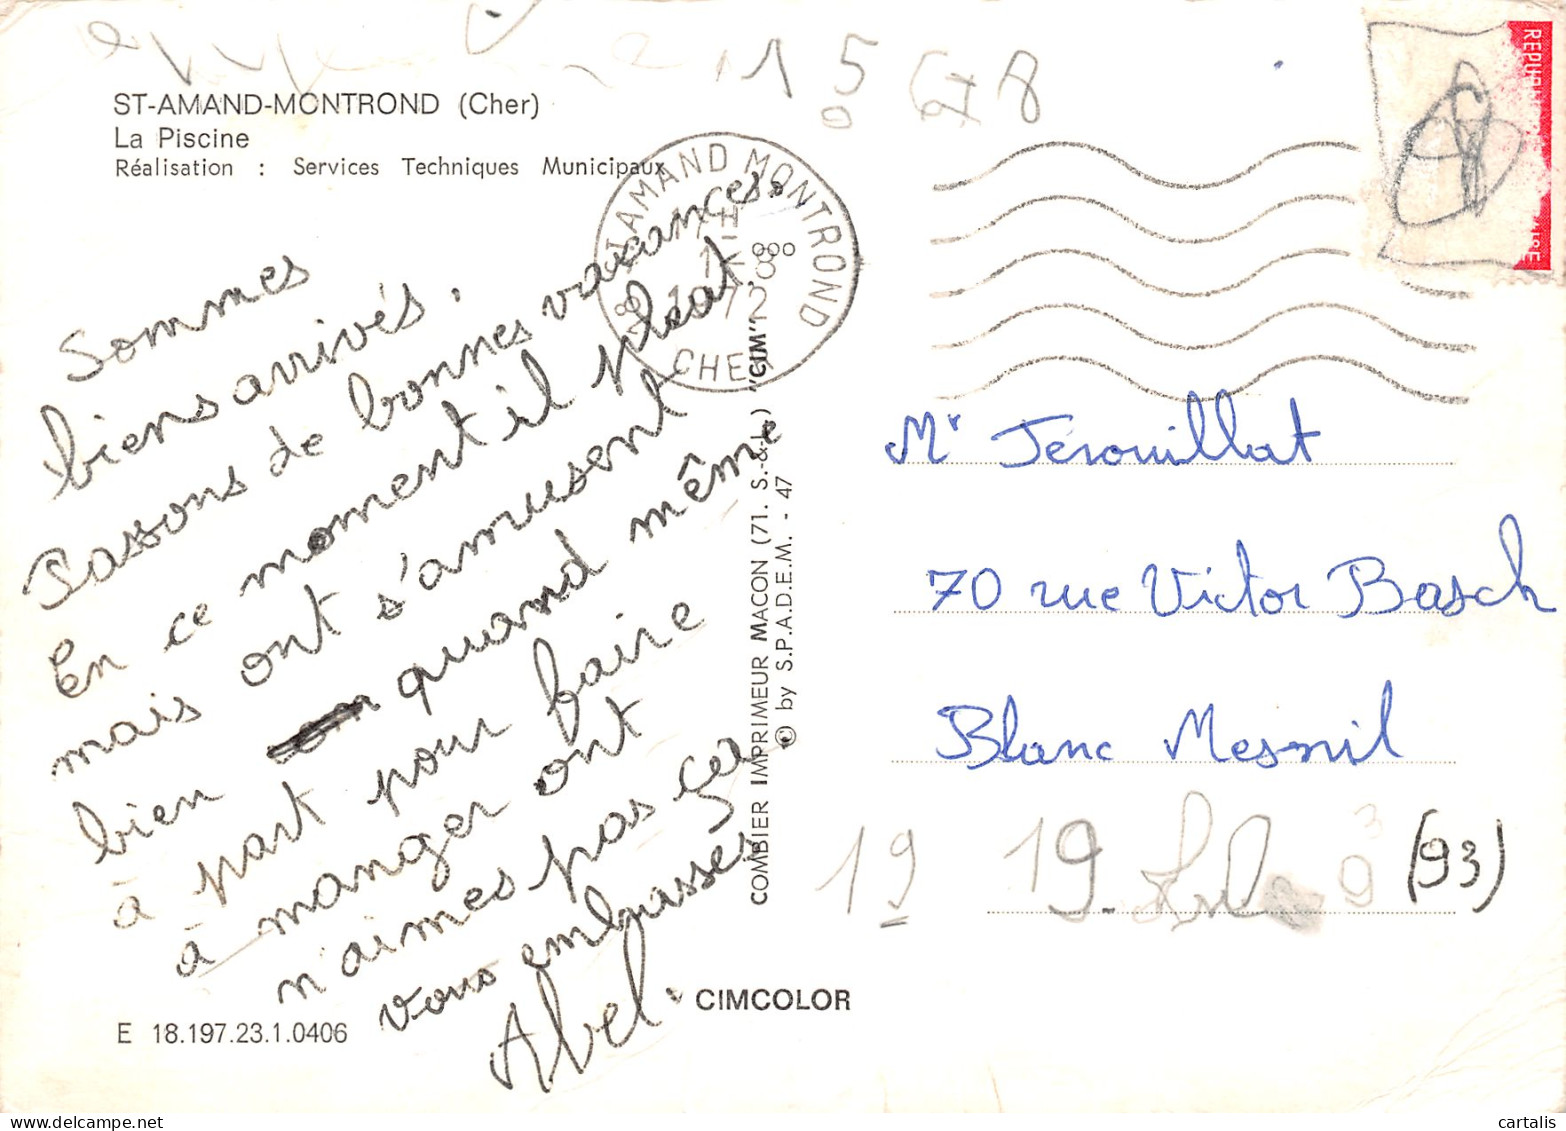 ST-AMAND-MONTROND (Cher)
La Piscine
Réalisation : Services Techniques Municipaux
Sommes
biens arrivés.
Passons de bonnes vacances.
En ce moment il pleat.
mais ont s'amusent
bien quand même
à part pour faire
à manger ont
n'aimes pas ça
vous embrasses
Abel.
E 18.197.23.1.0406
CIMCOLOR
COMBIER IMPRIMEUR MACON (71. S.-&-L.) "CIM"
© by S.P.A.D.E.M. - 47
18 ST AMAND MONTROND
1-8
72
CHER
REPUBL
Mr Jerouillat
70 rue Victor Basch
Blanc Mesnil
19 19 (93)
1 5 678
cartalis